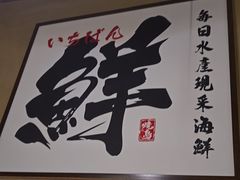 いちばん
鮮
毎日水產現采海鮮